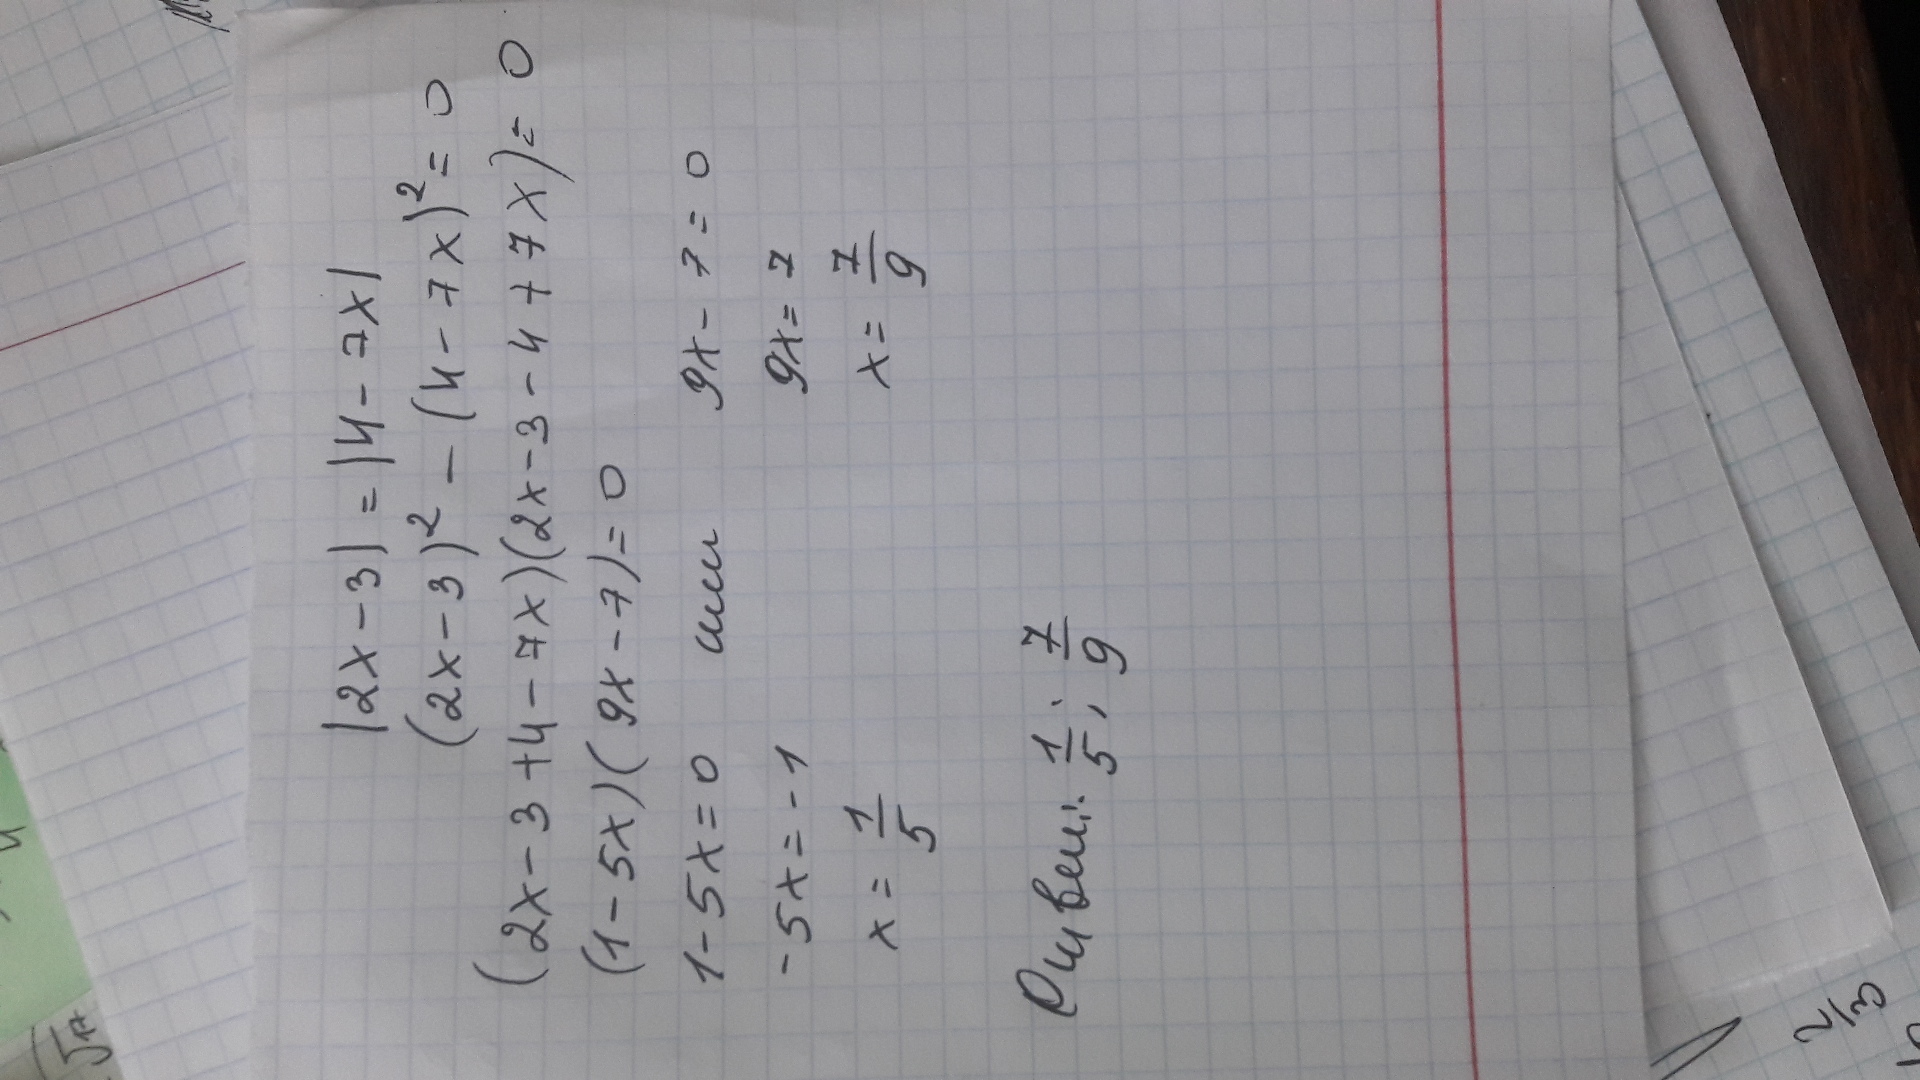 |2x-3|=|4-7x|
(2x-3)²-(4-7x)²=0
(2x-3+4-7x)(2x-3-4+7x)=0
(1-5x)(9x-7)=0
1-5x=0 или 9x-7=0
-5x=-1 9x=7
x=1/5 x=7/9
Ответ: 1/5; 7/9
√17
2/3